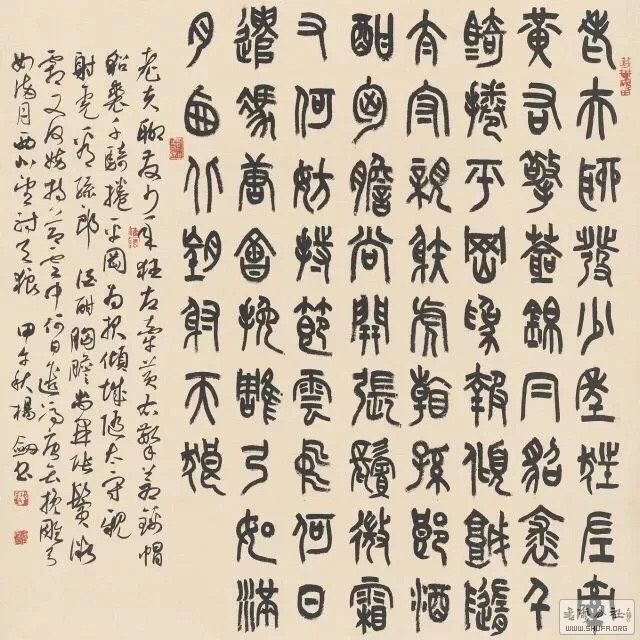 老夫聊發少年狂左牽
黃右擎蒼錦帽貂裘千
騎捲平岡為報傾城隨
太守親射虎看孫郎酒
酣胸膽尚開張鬢微霜
又何妨持節雲中何日
遣馮唐會挽雕弓如滿
月西北望射天狼
老夫聊發少年狂左牽黃右擎蒼錦帽
貂裘千騎捲平岡為報傾城隨太守親
射虎看孫郎 酒酣胸膽尚開張鬢微
霜又何妨持節雲中何日遣馮唐會挽雕弓
如滿月西北望射天狼 甲午秋楊劍書
WWW.SHUFA.ORG